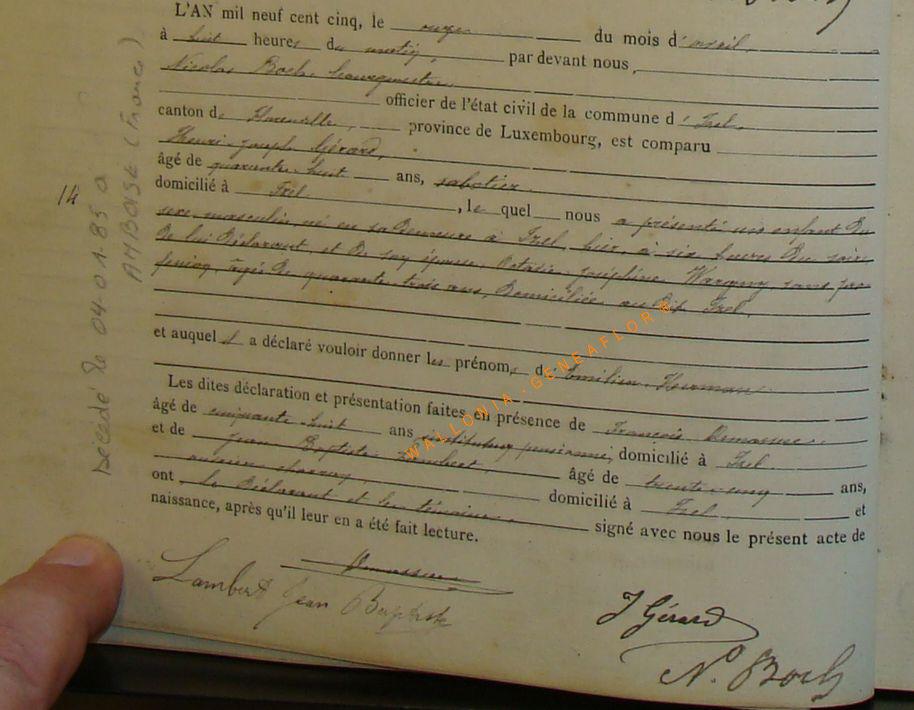 L'AN mil neuf cent cinq, le onze du mois d'avril
à huit heures du matin, par devant nous,
Nicolas Boch, bourgmestre,
officier de l'état civil de la commune d'Izel,
canton de Florenville, province de Luxembourg, est comparu
Henri-Joseph Gérard,
âgé de quarante-huit ans, sabotier
domicilié à Izel, le quel nous a présenté un enfant du
sexe masculin, né en sa demeure à Izel, hier, à six heures du soir
de lui déclarant, et de son épouse, Joséphine, sans pro-
fession, âgée de quarante-trois ans, domiciliée au dit Izel,
et auquel il a déclaré vouloir donner les prénoms de Emilien-Herman
Les dites déclaration et présentation faites en présence de François
âgé de cinquante-huit ans instituteur pensionné, domicilié à Izel
et de Jean Baptiste Lambert, âgé de ans,
domicilié à Izel et
ont le déclarant et les témoins, signé avec nous le présent acte de
naissance, après qu'il leur en a été fait lecture.
Lambert Jean Baptiste
J Gérard
N. Boch
14
Décédé le 04-01-85 à
AMBOISE (France)
WALLONIA-GENEAFLOR®